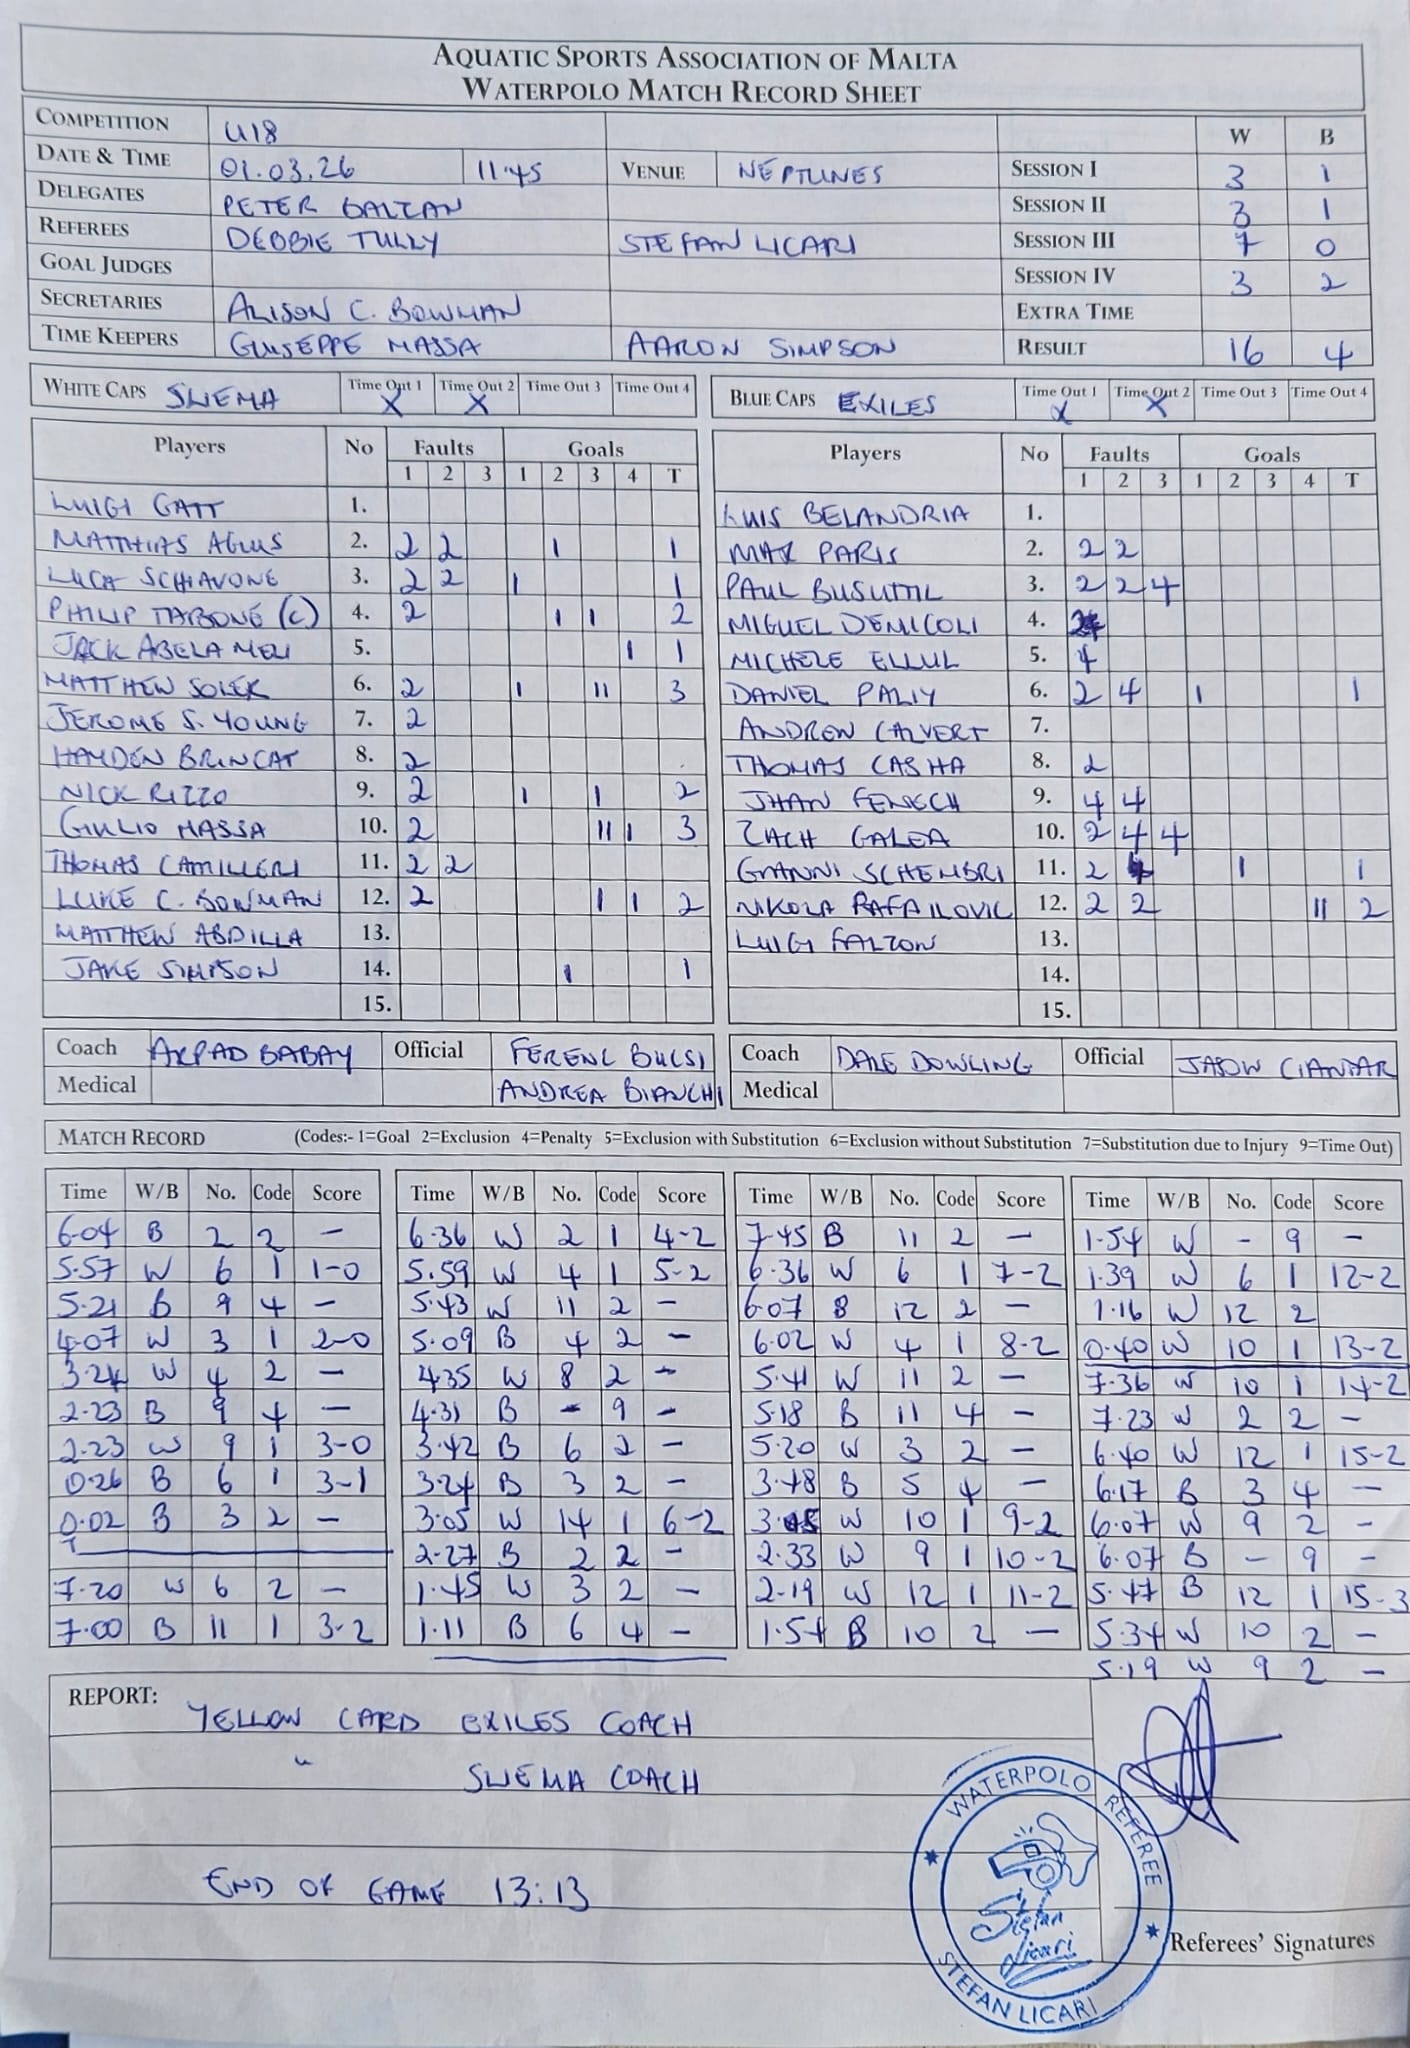 AQUATIC SPORTS ASSOCIATION OF MALTA
WATERPOLO MATCH RECORD SHEET
COMPETITION U18 W B
DATE & TIME 01.03.26 11.45 VENUE NEPTUNES SESSION I 3 1
DELEGATES PETER BALZAN SESSION II 3 1
REFEREES DEBBIE TULLY STEFAN LICARI SESSION III 7 0
GOAL JUDGES SESSION IV 3 2
SECRETARIES ALISON C. BOWMAN EXTRA TIME
TIME KEEPERS GIUSEPPE MASSA AARON SIMPSON RESULT 16 4
WHITE CAPS SLIEMA Time Out 1 X Time Out 2 X Time Out 3 Time Out 4
BLUE CAPS EXILES Time Out 1 X Time Out 2 X Time Out 3 Time Out 4
Players No Faults Goals
1 2 3 1 2 3 4 T
LUIGI GATT 1.
MATTHIAS AGIUS 2. 2 2 1 1
LUCA SCHIAVONE 3. 2 2 1 1
PHILIP TABONE (C) 4. 2 1 1 2
JACK ABELA MELI 5. 1 1
MATTHEW SOLER 6. 2 1 11 3
JEROME S. YOUNG 7. 2
HAYDEN BRINCAT 8. 2
NICK RIZZO 9. 2 1 1 2
GIULIO MASSA 10. 2 11 1 3
THOMAS CAMILLERI 11. 2 2
LUKE C. BOWMAN 12. 2 1 1 2
MATTHEW ABDILLA 13.
JAKE SIMPSON 14. 1 1
15.
Players No Faults Goals
1 2 3 1 2 3 4 T
LUIS BELANDRIA 1.
MAX PARIS 2. 2 2
PAUL BUSUTTIL 3. 2 2 4
MIGUEL DEMICOLI 4.
MICHELE ELLUL 5. 4
DANIEL PALIY 6. 2 4 1 1
ANDREW CALVERT 7.
THOMAS CASHA 8. 2
JHAN FENECH 9. 4 4
ZACH GALEA 10. 2 4 4
GIANNI SCHEMBRI 11. 2 4 1 1
NIKOLA RAFAILOVIC 12. 2 2 11 2
LUIGI FALZON 13.
14.
15.
Coach ARPAD BABAY Official FERENC BUCSI
Medical ANDREA BIANCHI
Coach DALE DOWLING Official JASON CIANTAR
Medical
MATCH RECORD (Codes:- 1=Goal 2=Exclusion 4=Penalty 5=Exclusion with Substitution 6=Exclusion without Substitution 7=Substitution due to Injury 9=Time Out)
Time W/B No. Code Score
6.04 B 2 2 -
5.57 W 6 1 1-0
5.21 B 9 4 -
4.07 W 3 1 2-0
3.24 W 4 2 -
2.23 B 9 4 -
2.23 W 9 1 3-0
0.26 B 6 1 3-1
0.02 B 3 2 -
7.20 W 6 2 -
7.00 B 11 1 3-2
Time W/B No. Code Score
6.36 W 2 1 4-2
5.59 W 4 1 5-2
5.43 W 11 2 -
5.09 B 4 2 -
4.35 W 8 2 -
4.31 B - 9 -
3.42 B 6 2 -
3.24 B 3 2 -
3.05 W 14 1 6-2
2.27 B 2 2 -
1.45 W 3 2 -
1.11 B 6 4 -
Time W/B No. Code Score
7.45 B 11 2 -
6.36 W 6 1 7-2
6.07 B 12 2 -
6.02 W 4 1 8-2
5.41 W 11 2 -
5.18 B 11 4 -
5.20 W 3 2 -
3.48 B 5 4 -
W 10 1 9-2
2.33 W 9 1 10-2
2.19 W 12 1 11-2
1.54 B 10 2 -
Time W/B No. Code Score
1.54 W - 9 -
1.39 W 6 1 12-2
1.16 W 12 2
0.40 W 10 1 13-2
7.36 W 10 1 14-2
7.23 W 2 2 -
6.40 W 12 1 15-2
6.17 B 3 4 -
6.07 W 9 2 -
6.07 B - 9 -
5.47 B 12 1 15-3
5.34 W 10 2 -
5.19 W 9 2 -
REPORT: YELLOW CARD EXILES COACH
" SLIEMA COACH
END OF GAME 13:13
WATERPOLO REFEREE
Stefan Licari
STEFAN LICARI
Referees' Signatures